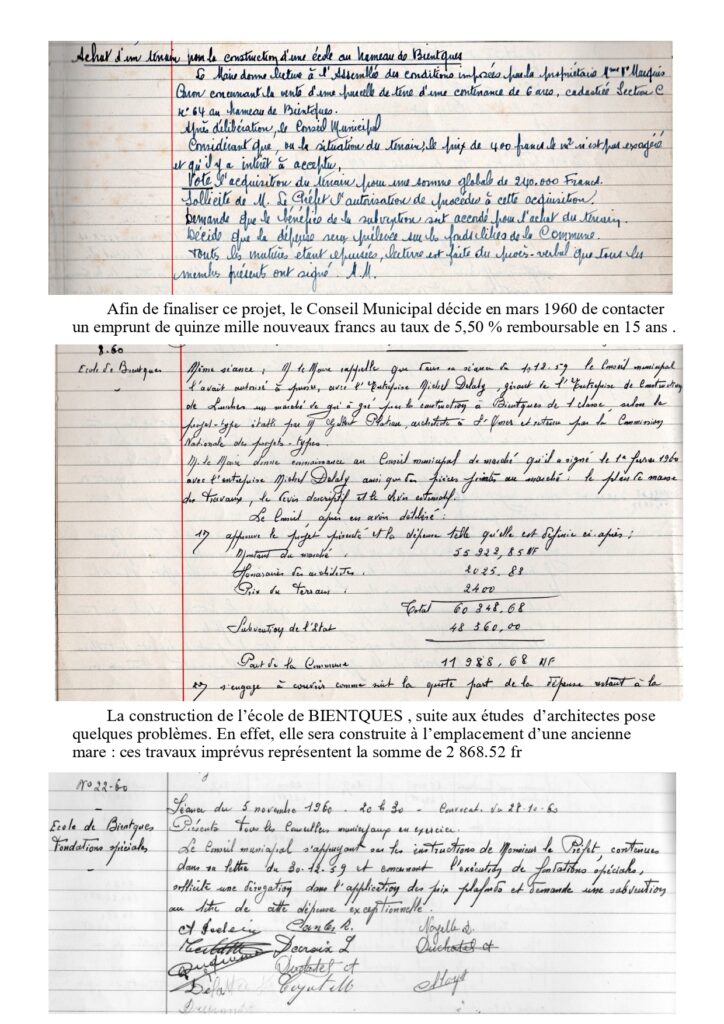 Achat d'un terrain pour la construction d'une école au hameau de Bientques
Le Maire donne lecture à l'Assemblée des conditions imposées par la propriétaire Mme Vve Marquis
concernant la vente d'une parcelle de terre d'une contenance de 6 ares, cadastrée Section C
N° 64 au hameau de Bientques.
Après délibération, le Conseil Municipal
Considérant que, vu la situation du terrain, le prix de 400 francs le m² n'est pas exagéré
et qu'il y a intérêt à accepter,
Vote l'acquisition du terrain pour une somme globale de 240.000 Francs.
Sollicite de M. Le Préfet l'autorisation de procéder à cette acquisition.
Demande que le bénéfice de la subvention soit accordé pour l'achat du terrain.
Décide que la dépense sera prélevée sur les fonds libres de la Commune.
Toutes les matières étant épuisées, lecture est faite du procès-verbal que tous les
membres présents ont signé. A.M.
Afin de finaliser ce projet, le Conseil Municipal décide en mars 1960 de contacter
un emprunt de quinze mille nouveaux francs au taux de 5,50 % remboursable en 15 ans .
8.60
Ecole de Bientques
Même séance ; M. le Maire rappelle que dans sa séance du 4.12.59 le Conseil municipal
l'avait autorisé à passer, avec l'Entreprise Michel Delaby, gérant de l'Entreprise de Construction
de Lumbres un marché de gré à gré pour la construction à Bientques de 1 classe, selon le
projet-type établi par M. Gilbert Plateau, architecte à St Omer et retenu par la Commission
Nationale des projets-types.
M. le Maire donne connaissance au Conseil municipal du marché qu'il a signé le 1er février 1960
avec l'entreprise Michel Delaby ainsi que des pièces jointes au marché : le plan de masse
des travaux, le devis descriptif et le devis estimatif.
Le Conseil, après en avoir délibéré :
1°) approuve le projet présenté et la dépense telle qu'elle est définie ci-après ;
Montant du marché : 55 922,85 NF
Honoraires des architectes : 2025.83
Prix du terrain : 2400
Total 60 348.68
Subvention de l'état 48 360,00
Part de la Commune 11 988,68 NF
2°) s'engage à couvrir comme suit la quote part de la dépense restant à la
La construction de l'école de BIENTQUES , suite aux études d'architectes pose
quelques problèmes. En effet, elle sera construite à l'emplacement d'une ancienne
mare : ces travaux imprévus représentent la somme de 2 868.52 fr
N° 22-60
Ecole de Bientques
Fondations spéciales
Séance du 5 novembre 1960 - 20 h 30 - Convocat. du 28-10-60
Présents tous les Conseillers municipaux en exercice.
Le Conseil municipal s'appuyant sur les instructions de Monsieur le Préfet, contenues
dans sa lettre du 30.12.59 et concernant l'exécution de fondations spéciales,
sollicite une dérogation dans l'application des prix plafonds et demande une subvention
au titre de cette dépense exceptionnelle.
Decroix L
Duchatel A